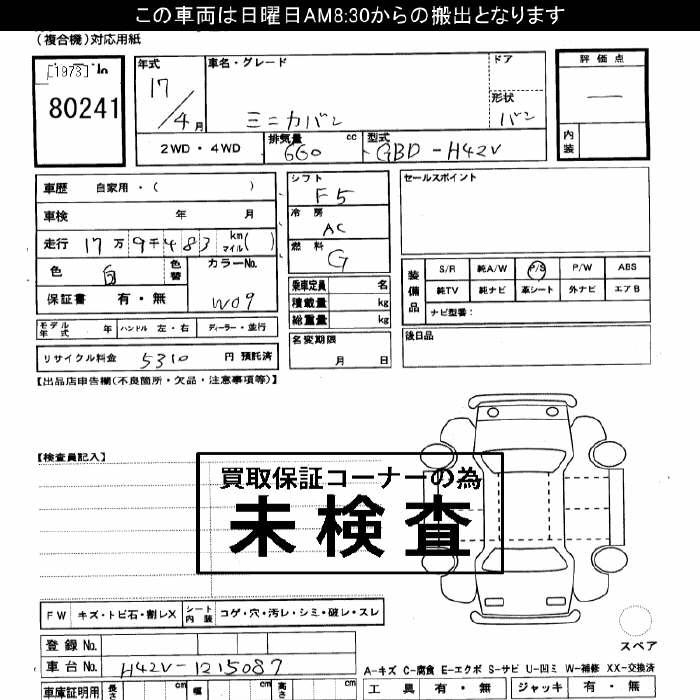 この車両は日曜日AM8:30からの搬出となります
(複合機)対応用紙
[1973] In
80241
年式 車名・グレード ドア 評価点
17/4月 ミニカバン 形状 バン ー
2WD・4WD 排気量 660 cc 型式 GBD-H42V 内装
車歴 自家用・( ) シフト F5 セールスポイント
車検 年 月 冷房 AC
走行 17万9千483 km マイル( ) 燃料 G
色 白 色替 カラーNo. W09
保証書 有・無
乗車定員 名
積載量 kg
総重量 kg
装備品 S/R 純A/W P/S P/W ABS
純TV 純ナビ 革シート 外ナビ エアB
ナビ型番:
モデル年式 年 ハンドル 左・右 ディーラー・並行
名変期限 月 日
後日品
リサイクル料金 5310 円 預託済
【出品店申告欄(不良箇所・欠品・注意事項等)】
【検査員記入】
買取保証コーナーの為
未検査
FW キズ・トビ石・割レX シート内装 コゲ・穴・汚レ・シミ・破レ・スレ
登録No.
スペア
車台No. H42V-1215087
A-キズ C-腐食 E-エクボ S-サビ U-凹ミ W-補修 XX-交換済
車庫証明用 長さ cm 幅 cm 高さ cm
工具 有・無 ジャッキ 有・無